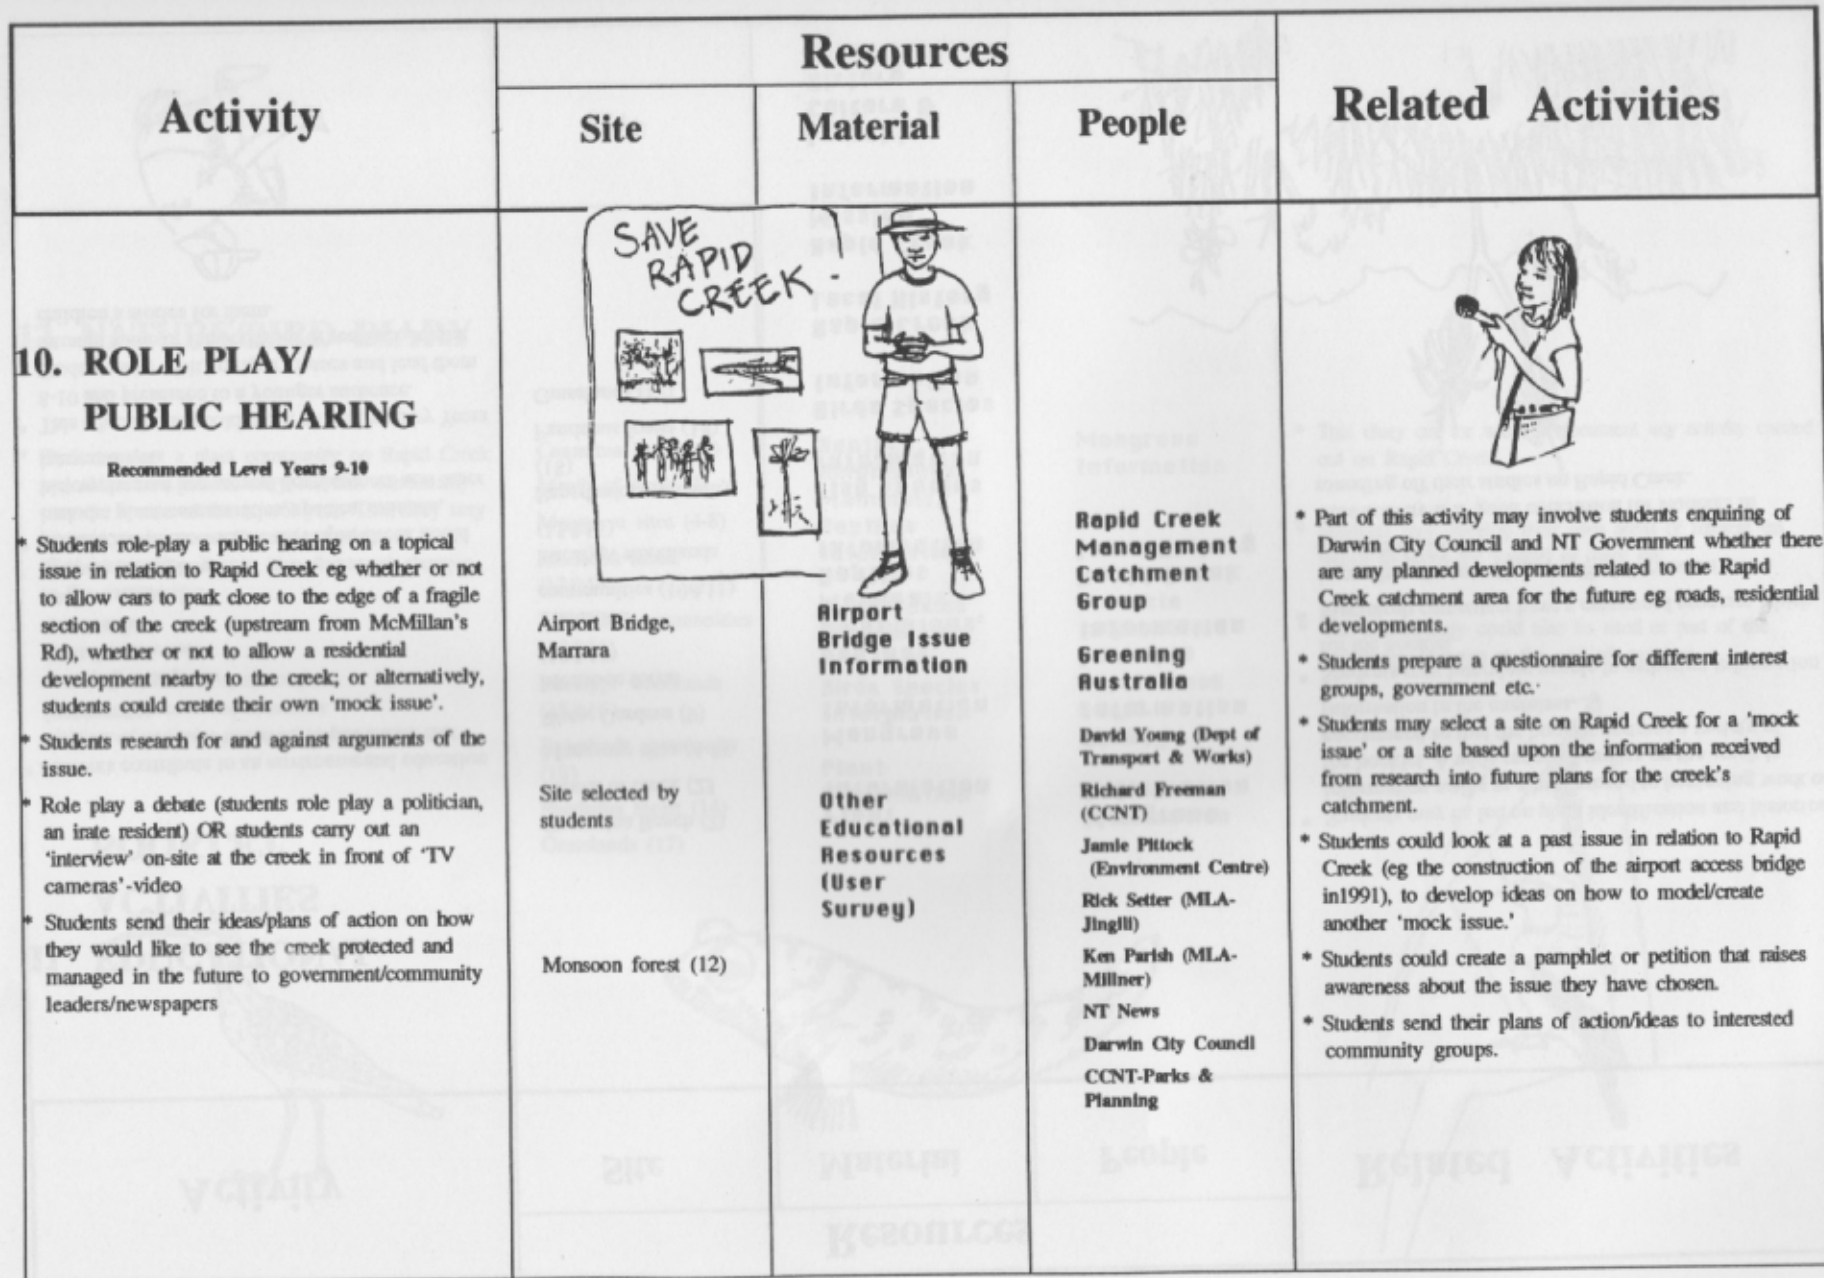 Activity
Resources
Site
Material
People
Related Activities
SAVE
RAPID
CREEK
10. ROLE PLAY/
PUBLIC HEARING
Recommended Level Years 9-10
* Students role-play a public hearing on a topical
issue in relation to Rapid Creek eg whether or not
to allow cars to park close to the edge of a fragile
section of the creek (upstream from McMillan's
Rd), whether or not to allow a residential
development nearby to the creek; or alternatively,
students could create their own 'mock issue'.
* Students research for and against arguments of the
issue.
* Role play a debate (students role play a politician,
an irate resident) OR students carry out an
'interview' on-site at the creek in front of 'TV
cameras'-video
* Students send their ideas/plans of action on how
they would like to see the creek protected and
managed in the future to government/community
leaders/newspapers
Airport Bridge,
Marrara
Site selected by
students
Monsoon forest (12)
Airport
Bridge Issue
Information
Other
Educational
Resources
(User
Survey)
Rapid Creek
Management
Catchment
Group
Greening
Australia
David Young (Dept of
Transport & Works)
Richard Freeman
(CCNT)
Jamie Pittock
(Environment Centre)
Rick Setter (MLA-
Jingili)
Ken Parish (MLA-
Millner)
NT News
Darwin City Council
CCNT-Parks &
Planning
* Part of this activity may involve students enquiring of
Darwin City Council and NT Government whether there
are any planned developments related to the Rapid
Creek catchment area for the future eg roads, residential
developments.
* Students prepare a questionnaire for different interest
groups, government etc.
* Students may select a site on Rapid Creek for a 'mock
issue' or a site based upon the information received
from research into future plans for the creek's
catchment.
* Students could look at a past issue in relation to Rapid
Creek (eg the construction of the airport access bridge
in1991), to develop ideas on how to model/create
another 'mock issue.'
* Students could create a pamphlet or petition that raises
awareness about the issue they have chosen.
* Students send their plans of action/ideas to interested
community groups.